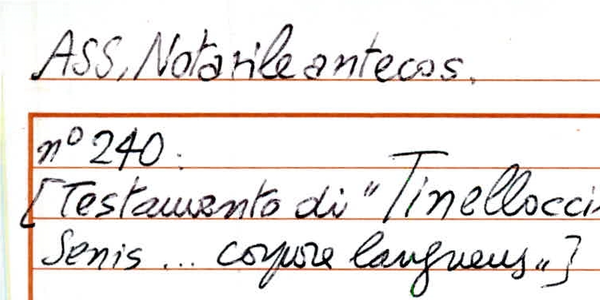 ASS, Notarile antecos.
n° 240:
[Testamento di "Tinellocci
Senis ... corpore languens"]